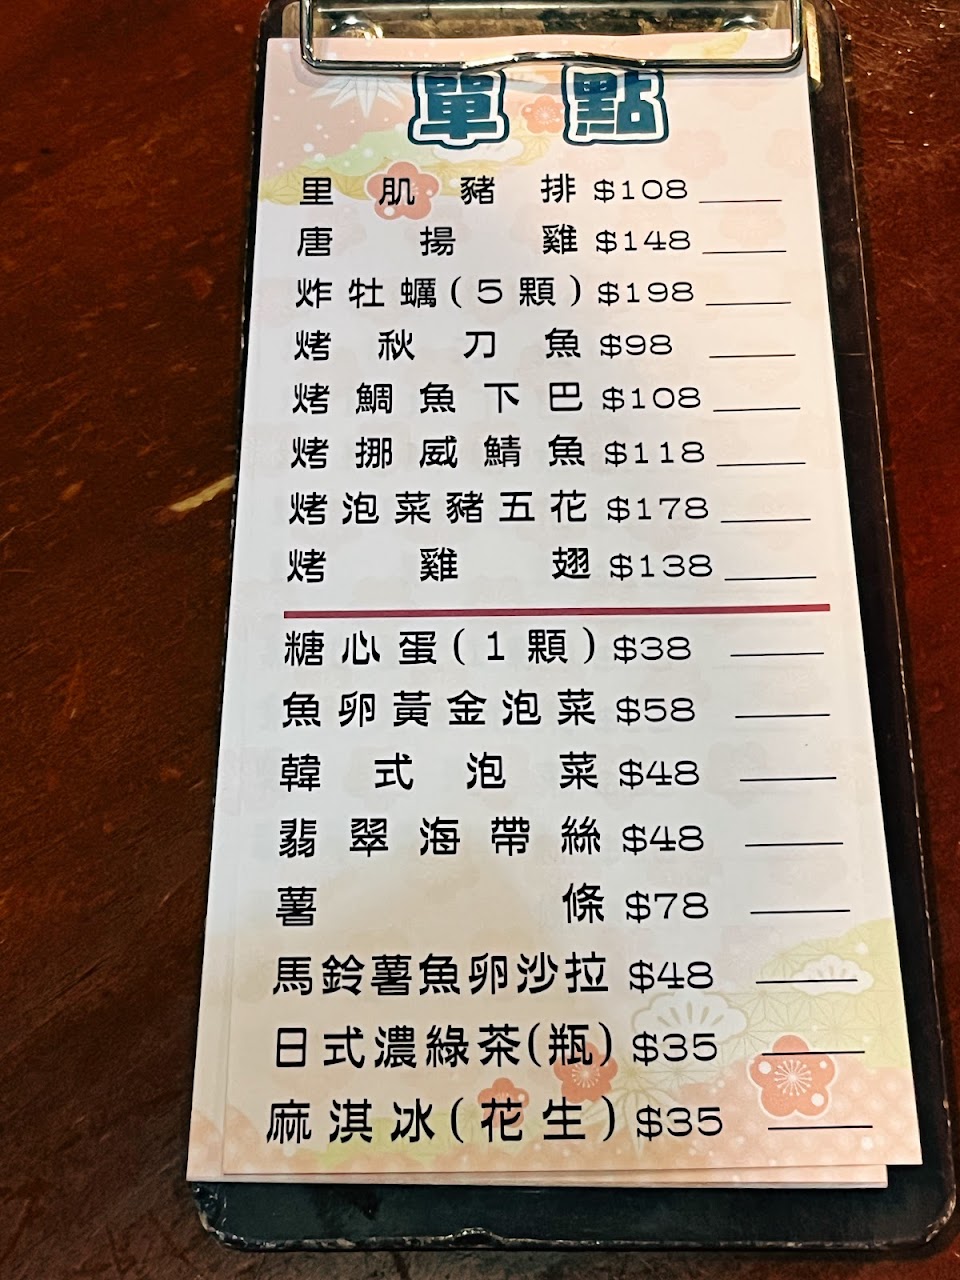 單點
里肌豬排 $108 ____
唐揚雞 $148 ____
炸牡蠣(5顆) $198 ____
烤秋刀魚 $98 ____
烤鯛魚下巴 $108 ____
烤挪威鯖魚 $118 ____
烤泡菜豬五花 $178 ____
烤雞翅 $138 ____
糖心蛋(1顆) $38 ____
魚卵黃金泡菜 $58 ____
韓式泡菜 $48 ____
翡翠海帶絲 $48 ____
薯條 $78 ____
馬鈴薯魚卵沙拉 $48 ____
日式濃綠茶(瓶) $35 ____
麻淇冰(花生) $35 ____